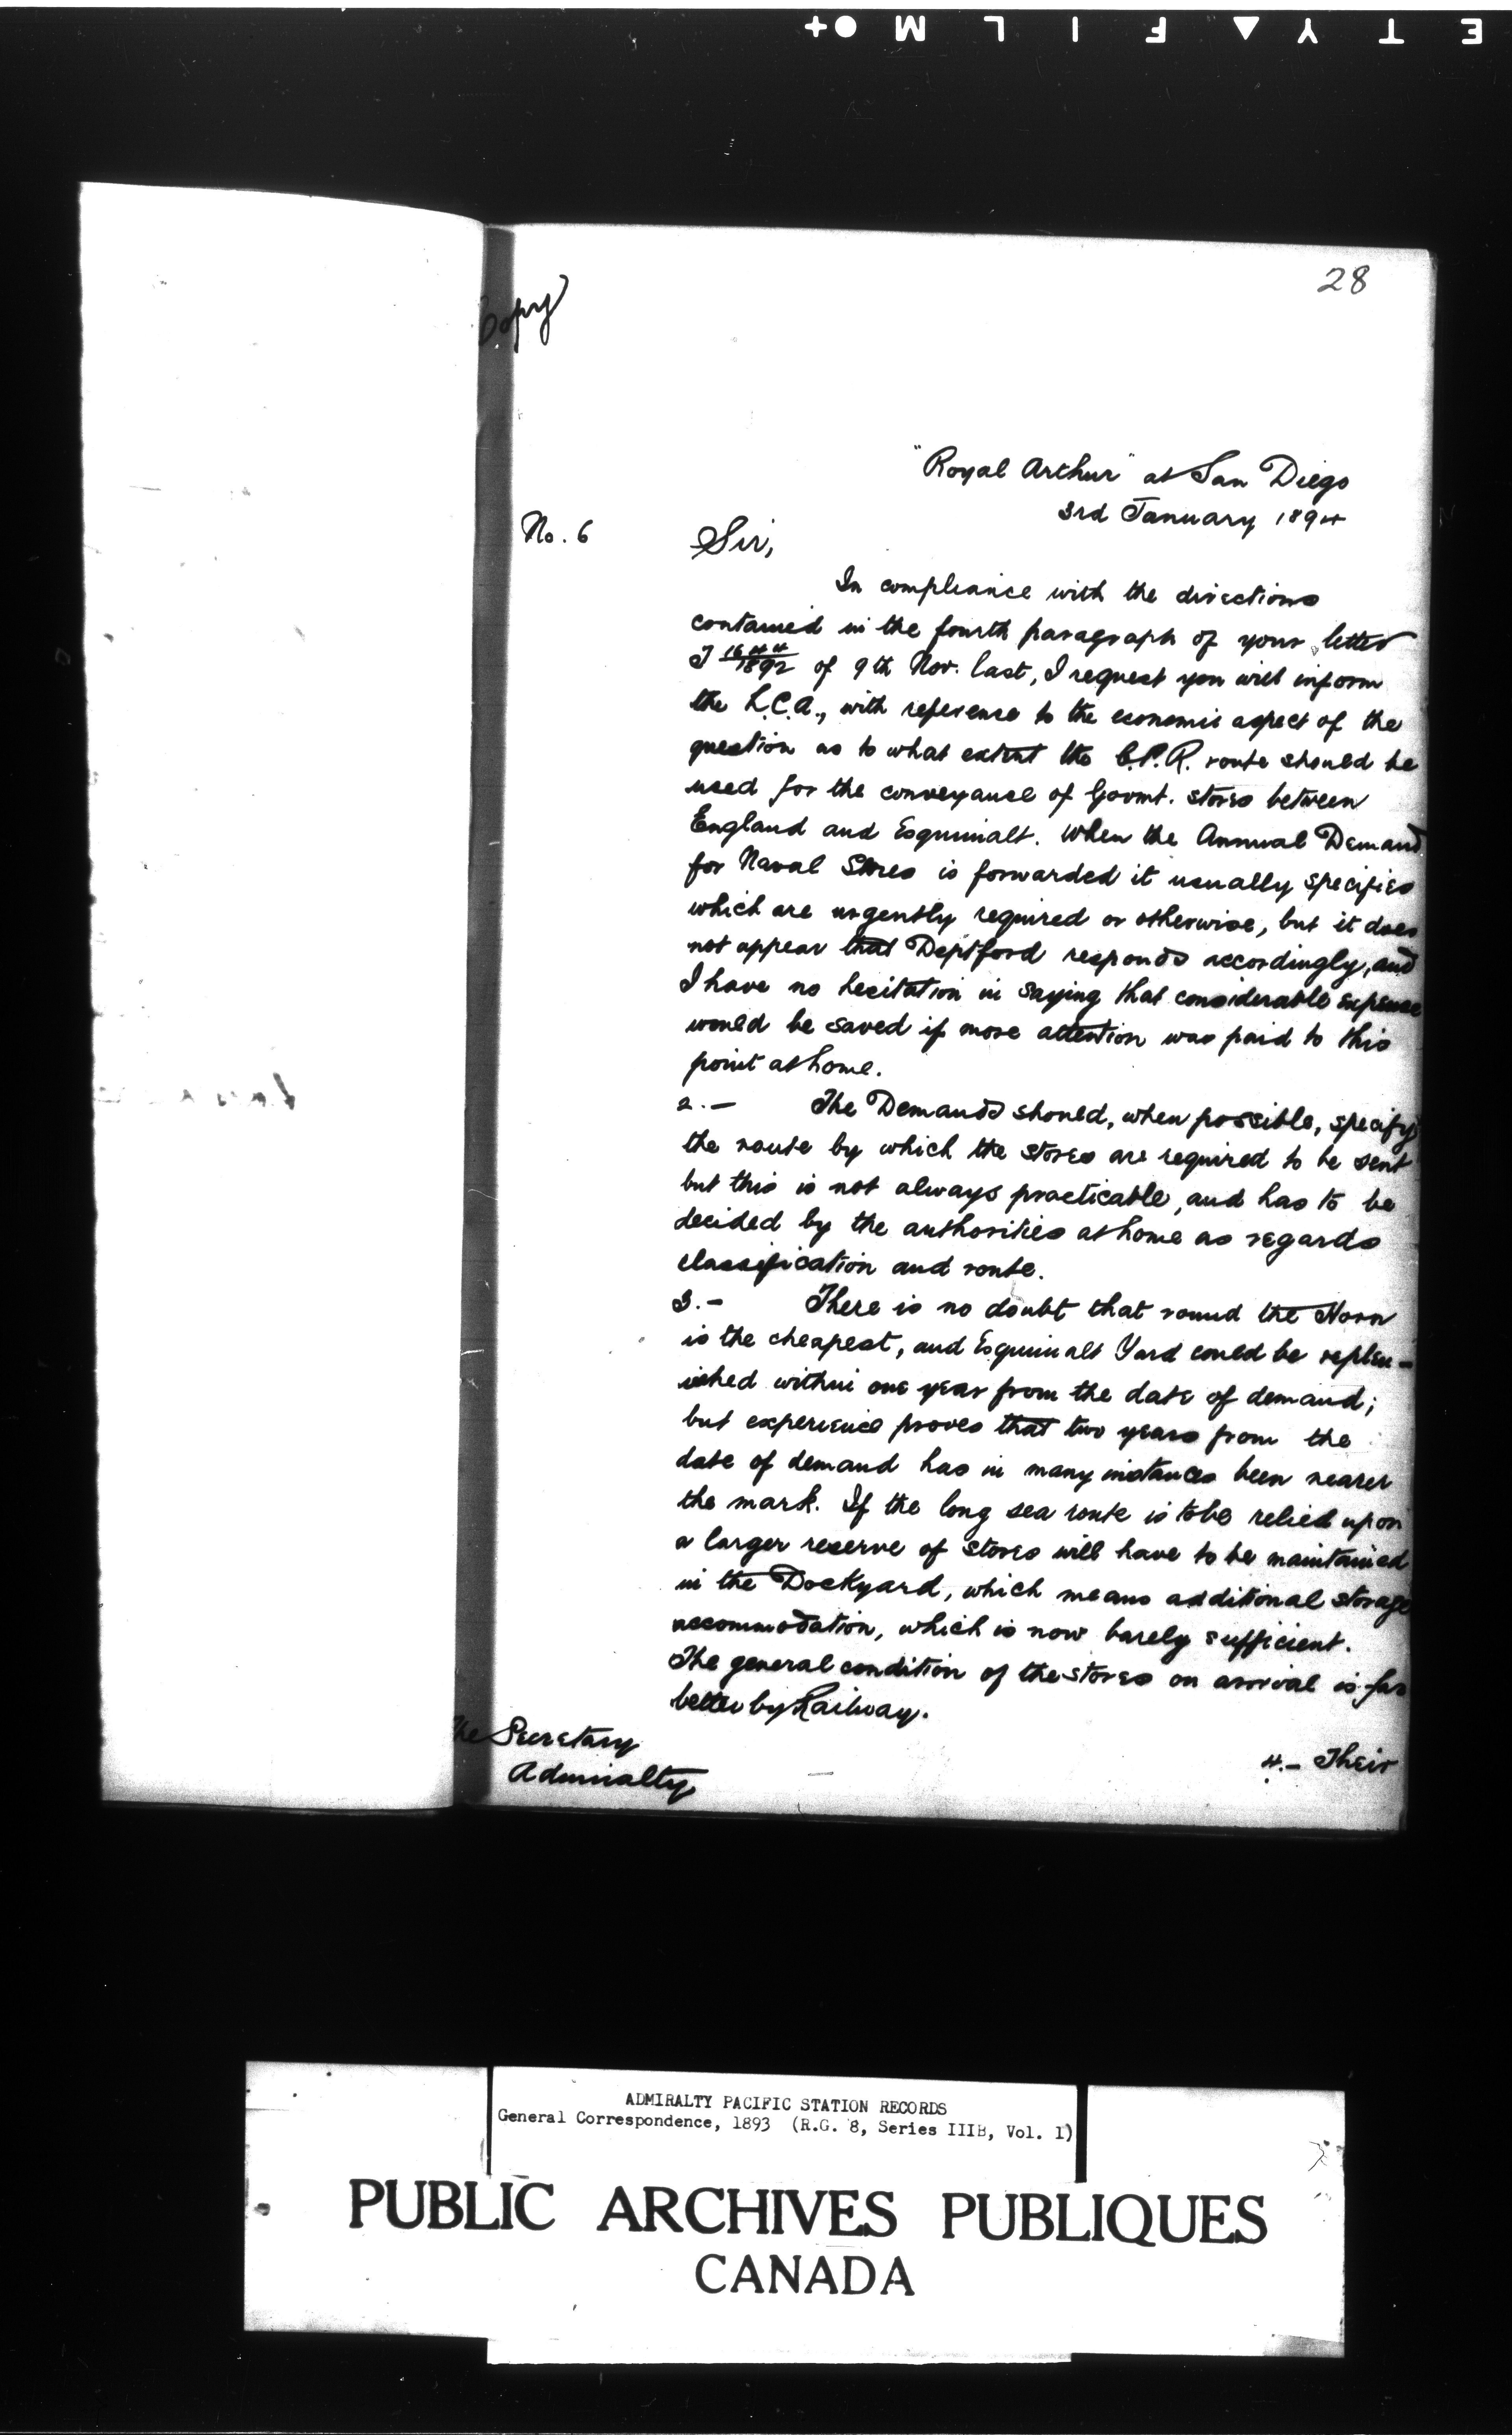 E T Y ▲ F I L M ● +
28
Copy
"Royal Arthur" at San Diego
3rd January 1894
No. 6
Sir,
In compliance with the directions
contained in the fourth paragraph of your letter
1892 of 9th Nov. last, I request you will inform
the L.C.A., with reference to the economic aspect of the
question as to what extent the C.P.R. route should be
used for the conveyance of Govmt. stores between
England and Esquimalt. When the Annual Demand
for Naval Stores is forwarded it usually specifies
which are urgently required or otherwise, but it does
not appear that Deptford responds accordingly, and
I have no hesitation in saying that considerable expense
would be saved if more attention was paid to this
point at home.
2.— The Demands should, when possible, specify
the route by which the stores are required to be sent
but this is not always practicable, and has to be
decided by the authorities at home as regards
classification and route.
3.— There is no doubt that round the Horn
is the cheapest, and Esquimalt Yard could be replen-
ished within one year from the date of demand;
but experience proves that two years from the
date of demand has in many instances been nearer
the mark. If the long sea route is to be relied upon
a larger reserve of stores will have to be maintained
in the Dockyard, which means additional storage
accommodation, which is now barely sufficient.
The general condition of the stores on arrival is far
better by Railway.
The Secretary
Admiralty
4.— Their
ADMIRALTY PACIFIC STATION RECORDS
General Correspondence, 1893 (R.G. 8, Series IIIB, Vol. 1)
PUBLIC ARCHIVES PUBLIQUES
CANADA